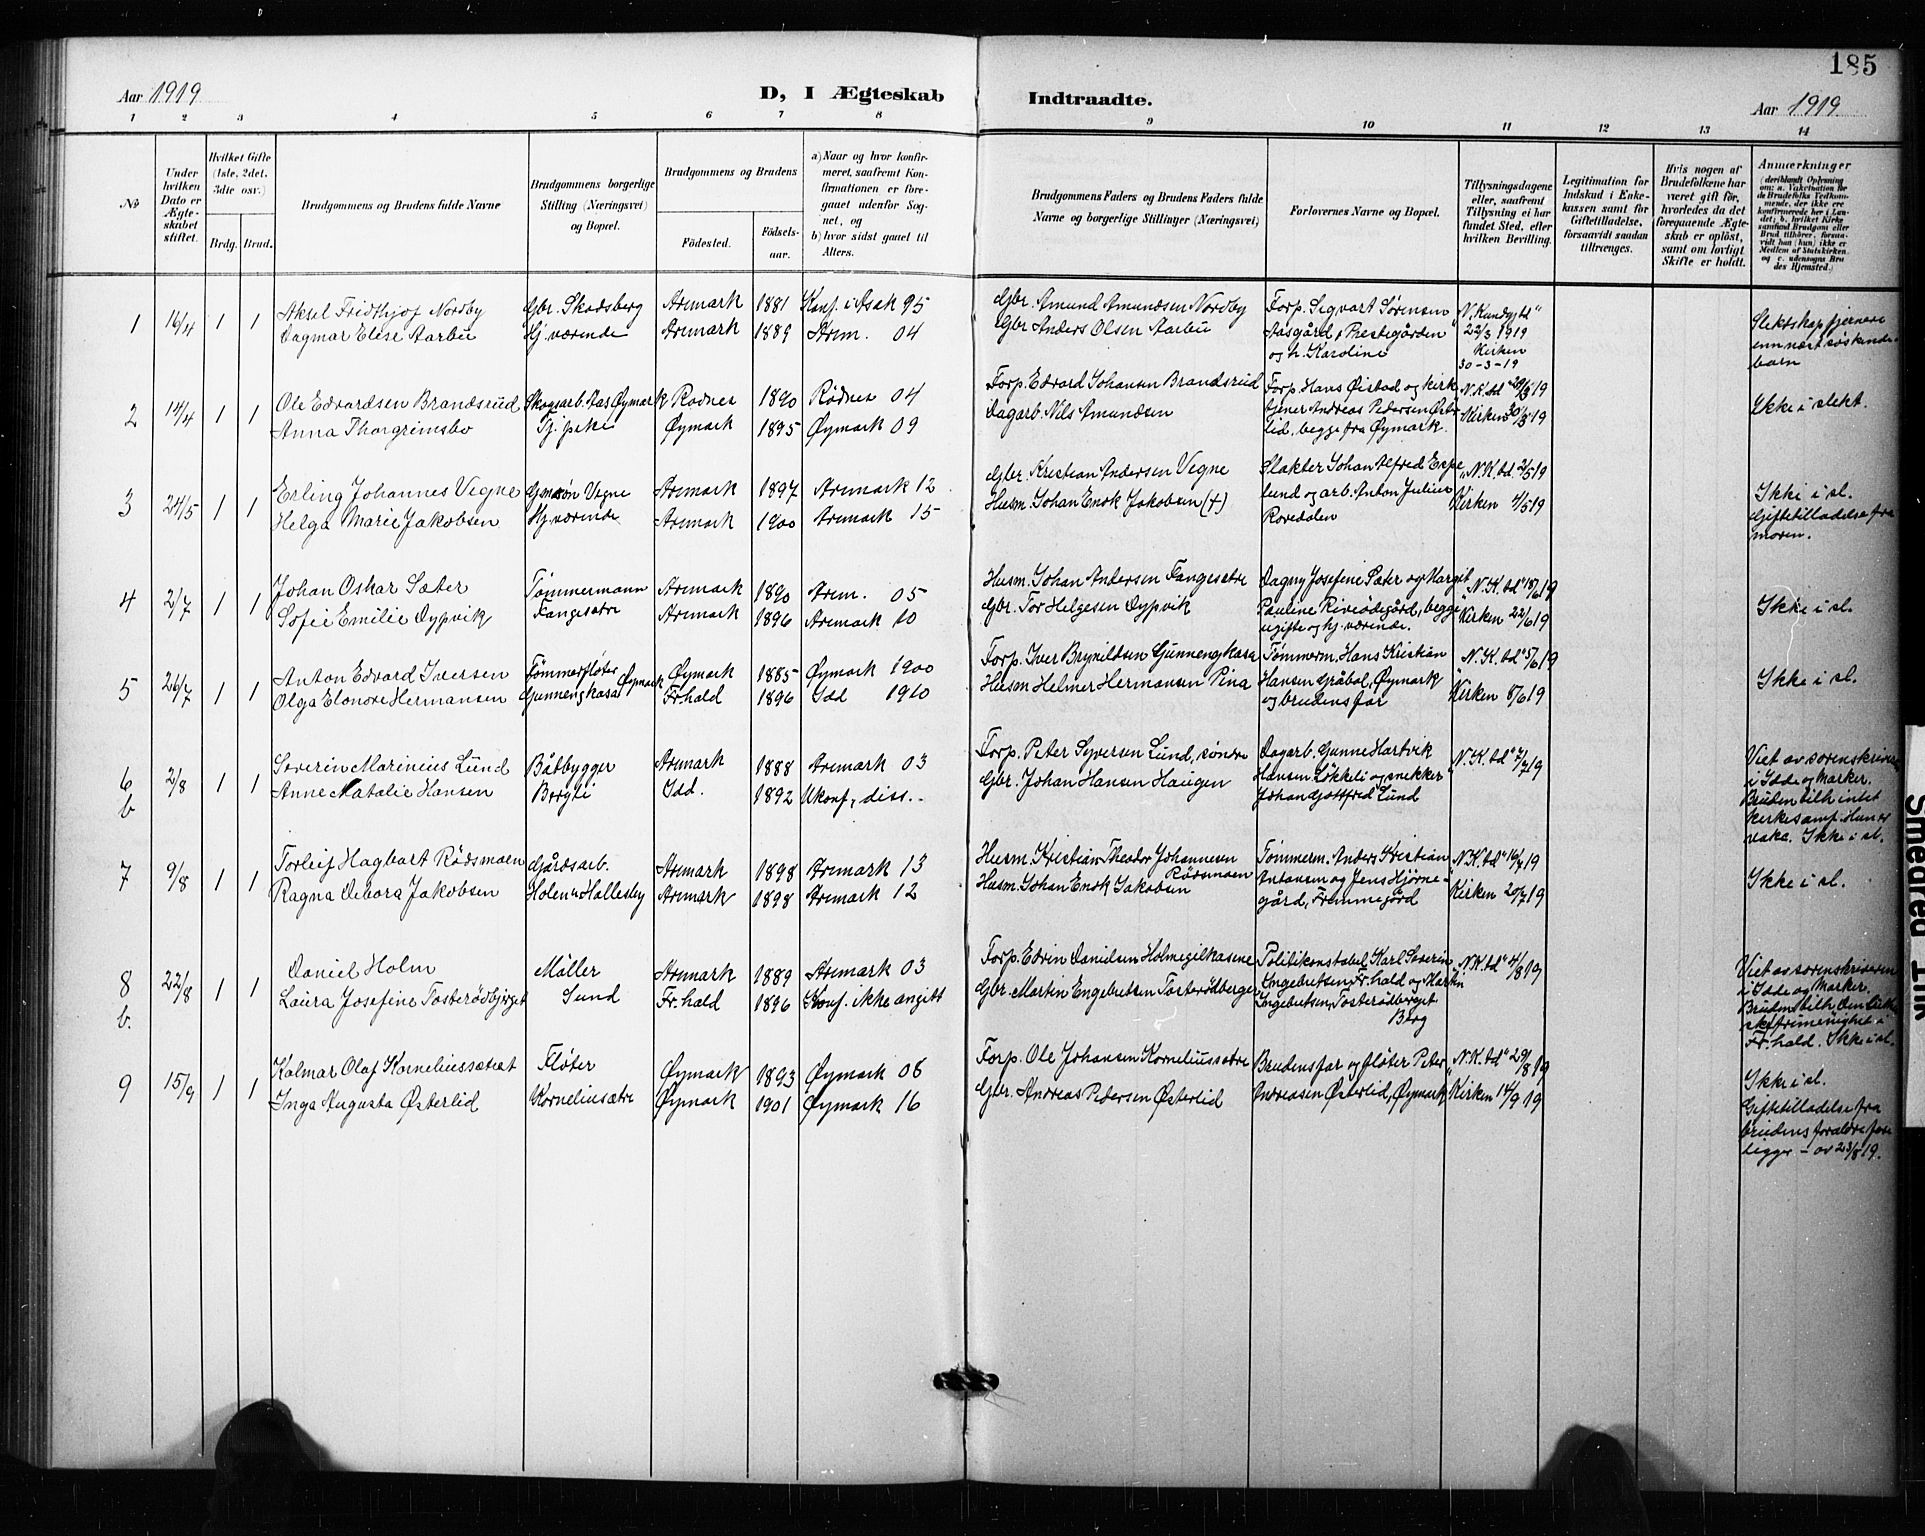 185
Aar 1919
D, I Ægteskab Indtraadte.
Aar 1919
1 2 3 4 5 6 7 8 9 10 11 12 13 14
No
Under hvilken Dato er Ægteskabet stiftet.
Hvilket Gifte (1ste, 2det, 3die osv.)
Brdg. Brud.
Brudgommens og Brudens fulde Navne
Brudgommens borgerlige Stilling (Næringsvei) og Bopæl.
Brudgommens og Brudens
Fødested.
Fødselsaar.
a) Naar og hvor konfirmeret, saafremt Konfirmationen er foregaaet udenfor Sognet, og
b) hvor sidst gaaet til Alters.
Brudgommens Faders og Brudens Faders fulde Navne og borgerlige Stillinger (Næringsvei)
Forlovernes Navne og Bopæl.
Tillysningsdagene eller, saafremt Tillysning ei har fundet Sted, efter hvilken Bevilling.
Legitimation for Indskud i Enkekassen samt for Giftetilladelse, forsaavidt saadan tiltrænges.
Hvis nogen af Brudefolkene har været gift før, hvorledes da det foregaaende Ægteskab er opløst, samt om lovligt Skifte er holdt.
Anmærkninger
(deriblandt Oplysning om: a. Vakcination for de Brudefolks Vedkommende, der ikke ere konfirmerede her i Landet; b. hvilket Kirkesamfund Brudgom eller Brud tilhører, forsaavidt han (hun) ikke er Medlem af Statskirken, og c. udensogns Brudes Hjemsted.)
1 16/4 1 1 Aksel Fridthjof Nordby Gbr. Skodsberg Aremark 1881 Konf. i Asak 95 Gbr. Amund Amundsen Nordby Forp. Sigvart Sørensen
Dagmar Elise Aarbu Hj. værende Aremark 1889 Arem. 04 Gbr Anders Olsen Aarbu Aasgård, Prestegården og h. Karoline
22/3 1919 Kirken 30-3-19
Slektskap fjernere enn nest søskendebarn
2 14/4 1 1 Ole Edvardsen Brandsrud Skogsarb. Øymark Rødnes 1890 Rødnes 04 Forp. Edvard Johansen Brandsrud Forp. Hans Øistad og kirk
Anna Thorgrimsbo Øymark 1895 Øymark 09 Dagarb. Nils Amundsen tjener Andreas Pedersen Østerlid, begge fra Øymark.
N.K.bd 29/3 19
Kirken 30/3 19
Ikke i slekt.
3 24/5 1 1 Erling Johannes Vegne Gmsøn Vegne Aremark 1897 Aremark 12 Gbr. Kristian Andersen Vegne Slakter Johan Alfred
Helga Marie Jakobsen Hj. værende Aremark 1900 Aremark 15 Husm. Johan Enok Jakobsen (+) lund og arb. Anton Julius
N.K.bd 2/5 19
Kirken 4/5 19
Ikke i sl.
Giftetilladelse fra moren.
4 2/7 1 1 Johan Oskar Sæter Tømmermann Aremark 1890 Arem. 05 Husm. Johan Andersen Fangesætre Dagny Josefine Sæter og Margit
Sofie Emilie Dypvik Fangesætre Aremark 1896 Aremark 10 Gbr. Tor Helgesen Dypvik Pauline begge ugifte og hj. værende.
N.K.bd 18/6 19
Kirken 22/6 19
Ikke i sl.
5 26/7 1 1 Anton Edvard Iversen Tømmerfløter Øymark 1885 Øymark 1900 Forp. Iver Brynildsen Gunnengkasa Tømmerm. Hans Kristian
Olga Elonore Hermansen Gunnengkasa Øymark Fr.hald 1896 Idd 1910 Husm Helmer Hermansen Pina Hansen Gråbøl, Øymark og brudens far
N.K.bd 5/6 19
Kirken 8/6 19
Ikke i sl.
6 b 2/8 1 1 Severin Marinius Lund Båtbygger Aremark 1888 Aremark 03 Forp. Peter Syversen Lund, søndre Dagarb. Gunne Hartvik
Anne Natalie Hansen Borgli Idd. 1892 Ukonf., diss. Gbr. Johan Hansen Haugen Hansen Løkkeli og snekker Johan Gottfred Lund
N.K.bd 7/7 19
Viet av sorenskriveren i Idde og Marker. Bruden tilh. intet kirkesamf. Hun er vaks. Ikke i sl.
7 9/8 1 1 Torleif Hagbart Rødsmoen Gårdsarb. Aremark 1898 Aremark 13 Husm. Kristian Theodor Johannesen Rødsmoen Tømmerm. Anders Kristian
Ragna Debora Jakobsen Holen u. Hallesby Aremark 1898 Aremark 12 Husm. Johan Enok Jakobsen Antonsen og Jens Hjørnegård, Fremmegård
N.K.bd 16/7 19
Kirken 20/7 19
Ikke i sl.
8 b. 22/8 1 1 Daniel Holm Møller Aremark 1889 Aremark 03 Forp. Edvin Danielsen Holmegilkasene Politikonstabel Karl Severin
Laura Josefine Tosterødbjerget Sund Fr.hald 1896 Konf. ikke angitt Gbr. Martin Engebretsen Tosterødberget Ingebretsen, Fr.hald og Martin Ingebretsen, Tosterødberget Berg
N.K.bd 4/8 19
Viet av sorenskriveren i Idde og Marker. Bruden tilh. den frimenighet i Fr.hald. Ikke i sl.
9 15/9 1 1 Kalmar Olaf Korneliussætret Fløter Øymark 1893 Øymark 08 Forp. Ole Johansen Korneliussætre Brudens far og fløter Peter
Inga Augusta Østerlid Korneliusætre Øymark 1901 Øymark 16 Gbr. Andreas Pedersen Østerlid Andreasen Østerlid, Øymark
N.K.bd 29/8 19
Kirken 14/9 19
Ikke i sl.
Giftetilladelse fra brudens foreldre foreligger - av 23/8 19.